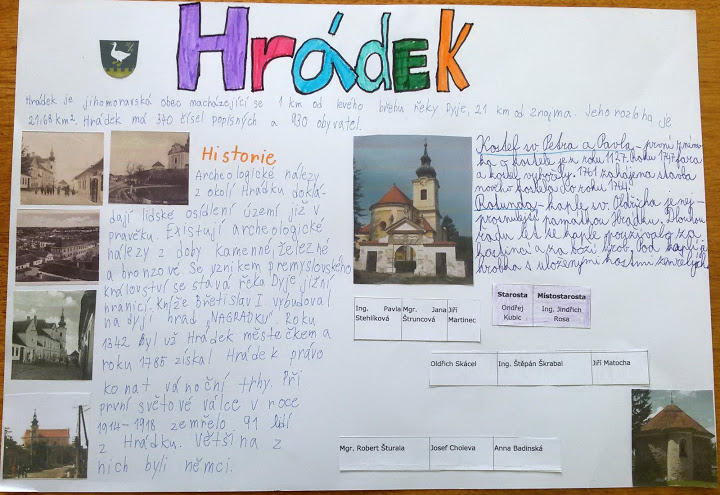 Hrádek
Hrádek je jihomoravská obec macházející se 1 km od levého břehu řeky Dyje, 21 km od Znojma. Jeho rozloha je
21.68 km². Hrádek má 340 čísel popisných a 930 obyvatel.
Historie
Archeologické nálezy
z okolí Hrádku doklá-
dají lidské osídlení území již v
pravěku. Existují archeologické
nálezy z doby kamenné, železné
a bronzové. Se vznikem přemyslovského
království se stává řeka Dyje jižní
hranicí. Kníže Břetislav I vybudoval
na dyji hrad „NAGRADKU". Roku
1342 byl už Hrádek městečkem a
roku 1785 získal Hrádek právo
konat vánoční trhy. Při
první světové válce v roce
1914-1918 zemřelo 91 lidí
z Hrádku. Většina z
nich byli němci.
Kostel sv. Petra a Pavla - první zmín-
ka o kostele je z roku 1127. Roku 1747 fara
a kostel vyhořely. 1761 zahájena stavba
nového kostela do roku
Rotunda - kaple sv. Oldřicha je nej-
cennější památkou Hrádku. Dlouhou
řadu let se kaple používala za
a za boží hrob. Pod kaplí je
hrobka s uloženými kostmi zemřelých
Starosta Místostarosta
Ondřej Kubic Ing. Jindřich Rosa
Ing. Pavla Stehlíková Mgr. Jana Štruncová Jiří Martinec
Oldřich Skácel Ing. Štěpán Škrabal Jiří Matocha
Mgr. Robert Šturala Josef Choleva Anna Badinská